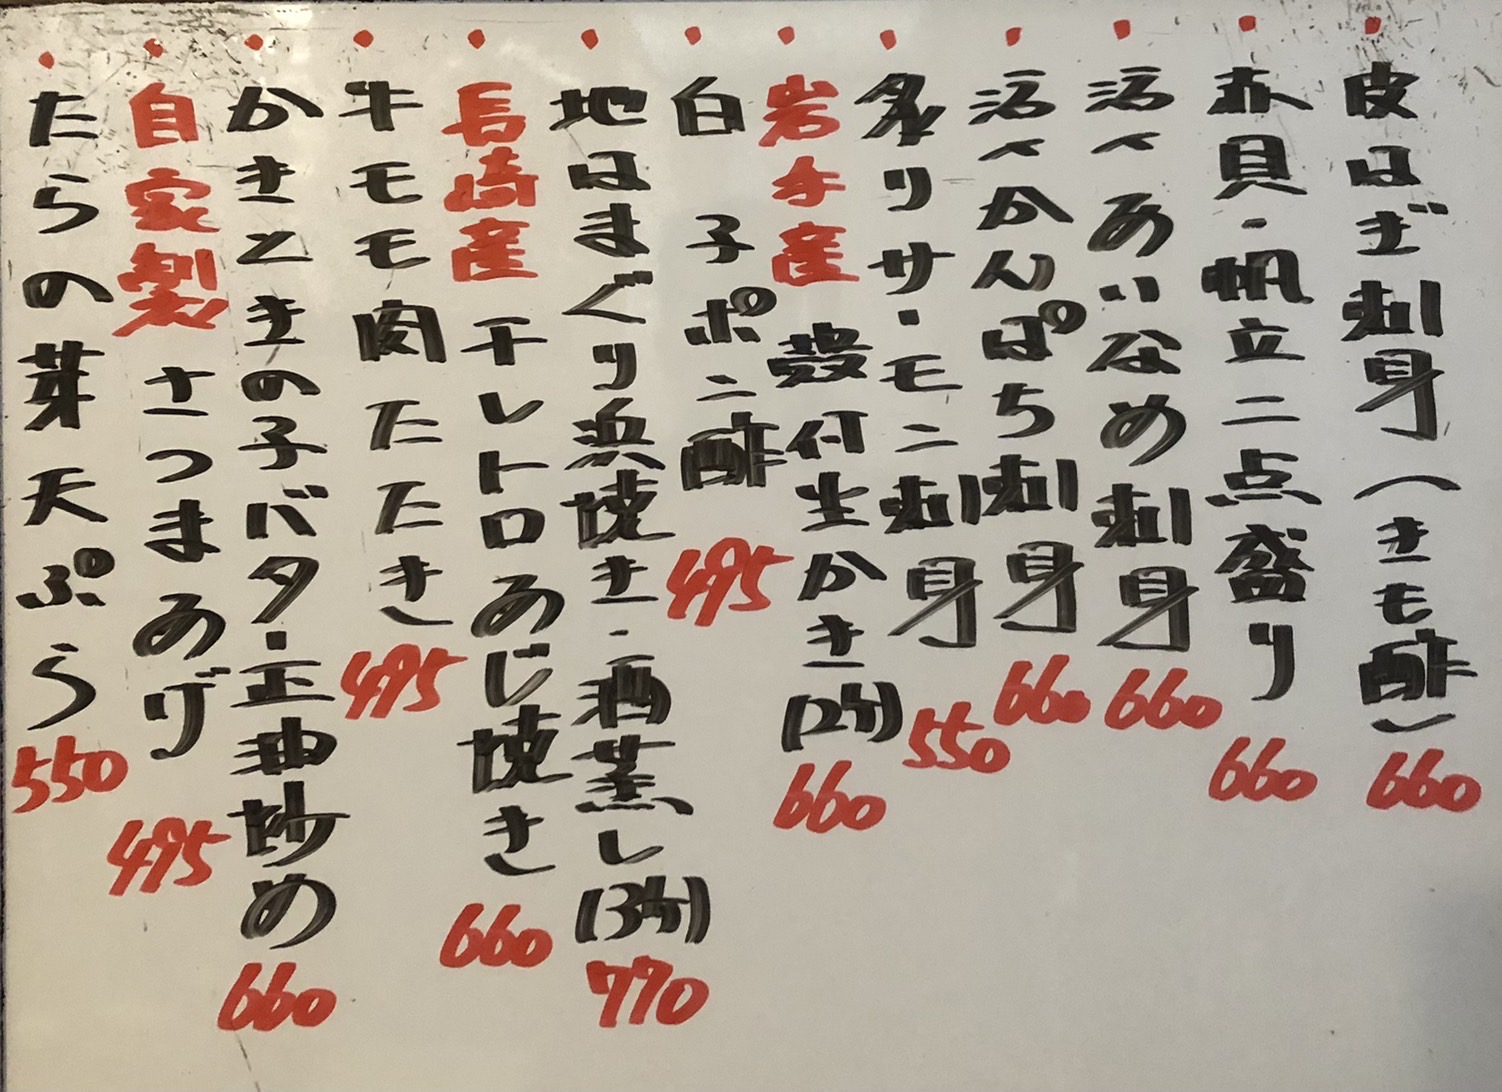 皮はぎ刺身(きも酢) 660
赤貝・帆立二点盛り 660
活〆あいなめ刺身 660
活〆かんぱち刺身 660
炙りサーモン刺身 550
岩手産 殻付生かき(2ケ) 660
白子ポン酢 495
地はまぐり浜焼き・酒蒸し(3ケ) 770
長崎産 干しトロあじ焼き 660
牛モモ肉たたき 495
かきときの子バター正油炒め 660
自家製 さつまあげ 495
たらの芽天ぷら 550